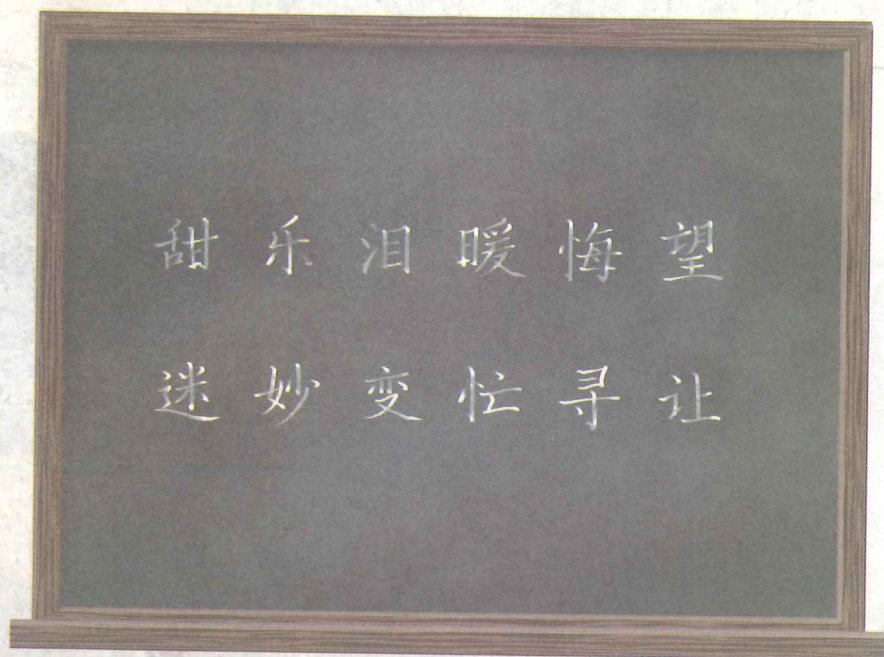 甜 乐 泪 暖 悔 望
迷 妙 变 忙 寻 让